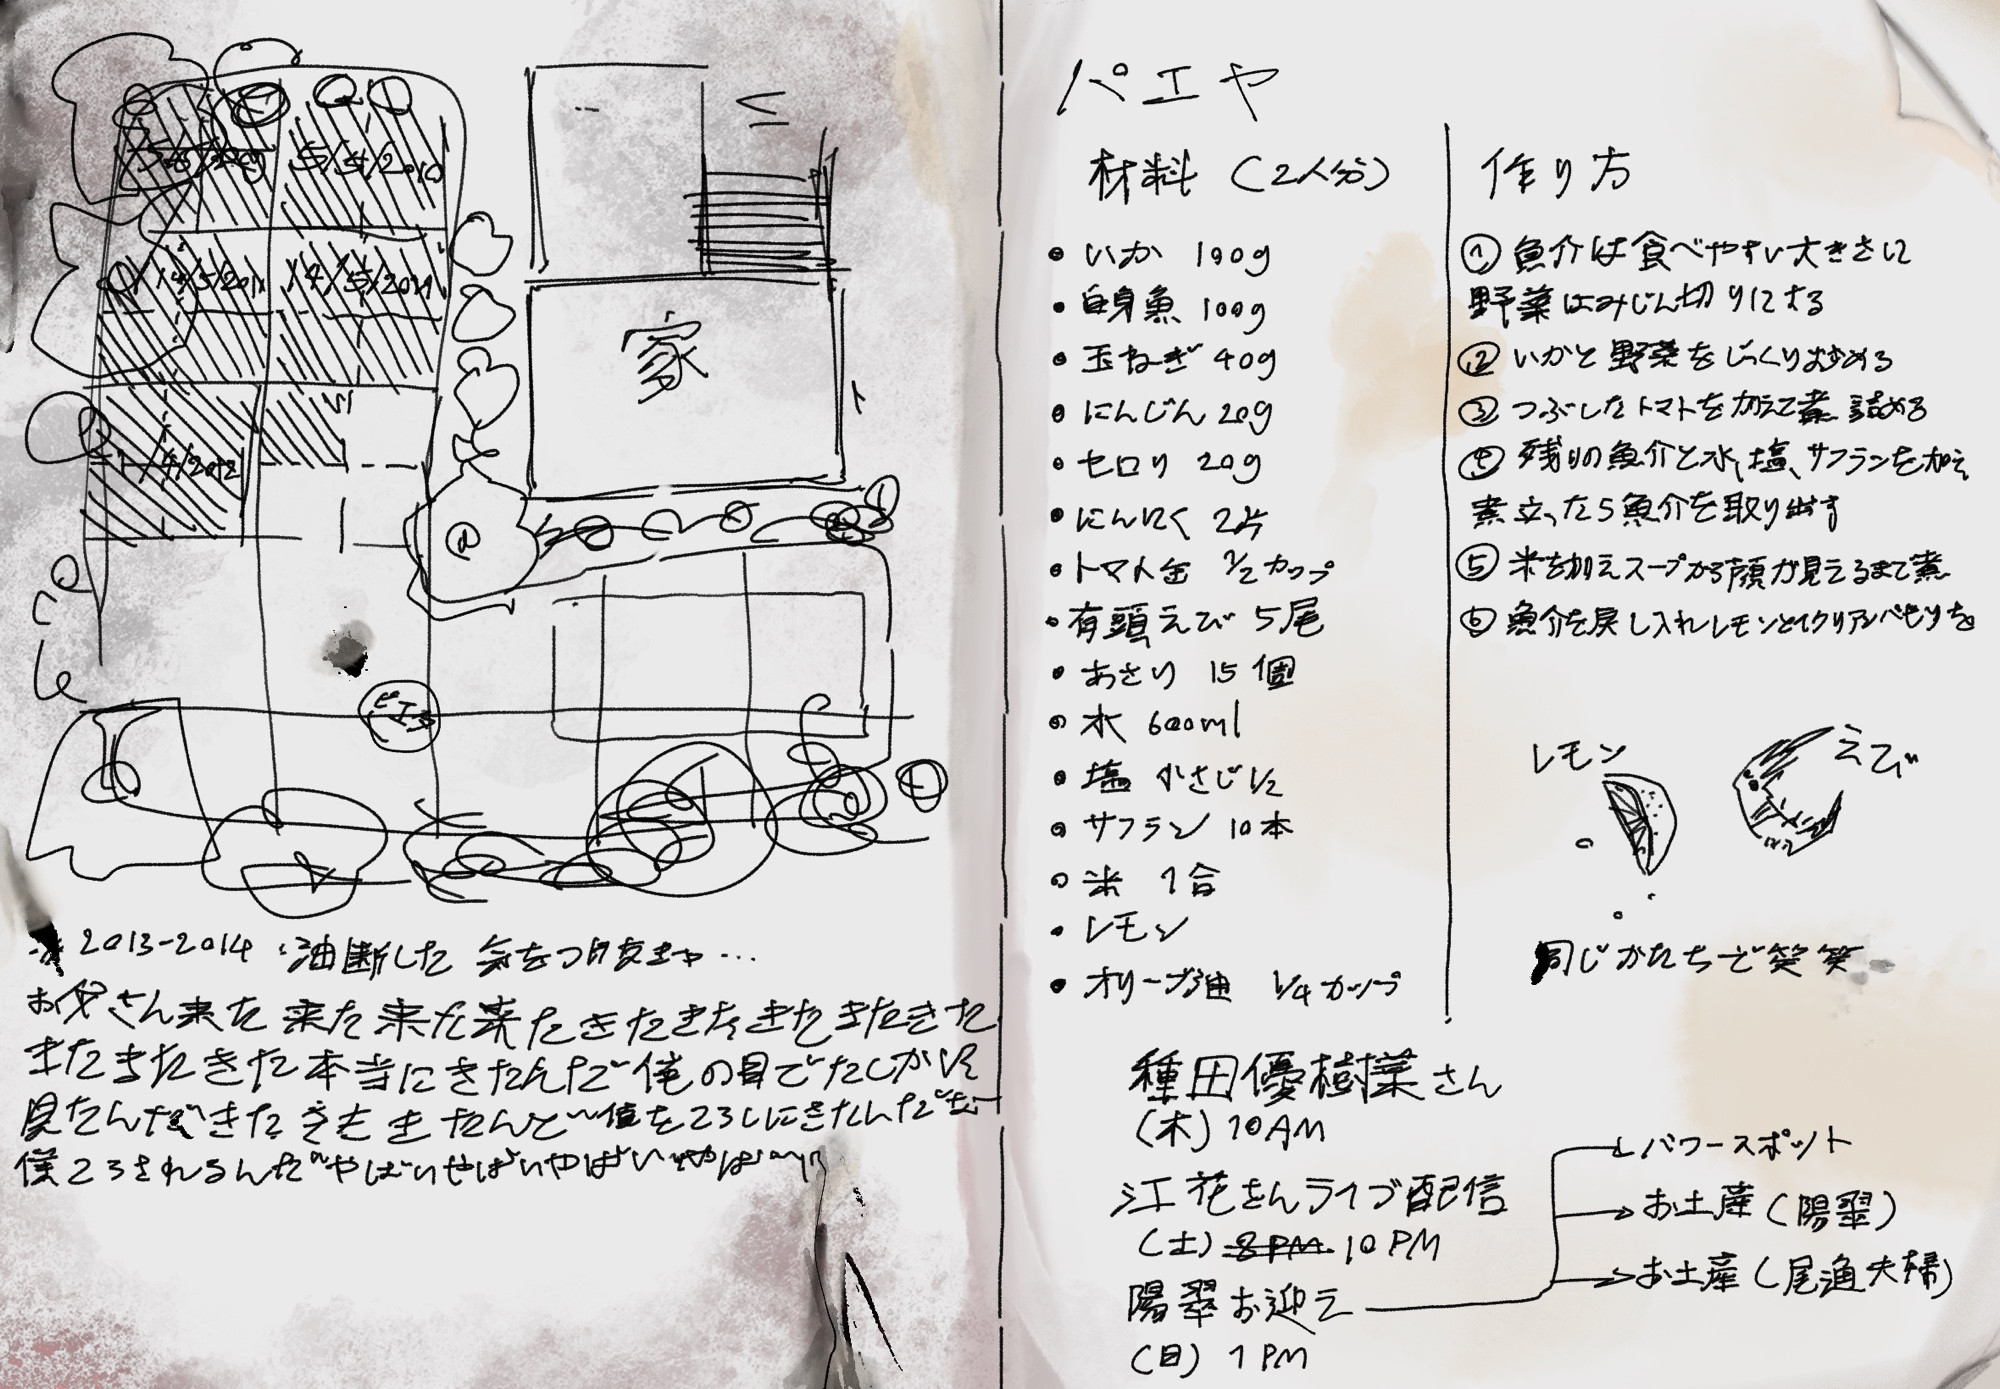 5/5/2010
14/5/2011
14/5/2011
家
ピエロ
※ 2013-2014 油断した 気をつけなきゃ…
お父さん来た 来た来た来たきたきたきたきたきた
きたきたきた本当にきたんだ俺の目でたしかに
見たんだきたきたきたんだ俺をころしにきたんだ
僕ころされるんだやばいやばいやばい
パエヤ
材料（2人分）
・いか 100g
・白身魚 100g
・玉ねぎ 40g
・にんじん 20g
・セロリ 20g
・にんにく 2片
・トマト缶 1/2カップ
・有頭えび 5尾
・あさり 15個
・水 600ml
・塩 小さじ1/2
・サフラン 10本
・米 1合
・レモン
・オリーブ油 1/4カップ
作り方
① 魚介は食べやすい大きさに
野菜はみじん切りにする
② いかと野菜をじっくり炒める
③ つぶしたトマトを加えて煮詰める
④ 残りの魚介と水、塩、サフランを加え
煮立ったら魚介を取り出す
⑤ 米を加えスープから顔が見えるまで煮
⑥ 魚介を戻し入れレモンとイタリアンパセリを
レモン
えび
同じかたちで笑笑
種田優樹菜さん
(木) 10AM
江花さんライブ配信
(土) 8PM 10PM
陽翠お迎え
(日) 1PM
パワースポット
お土産（陽翠）
お土産（尾漁夫婦）